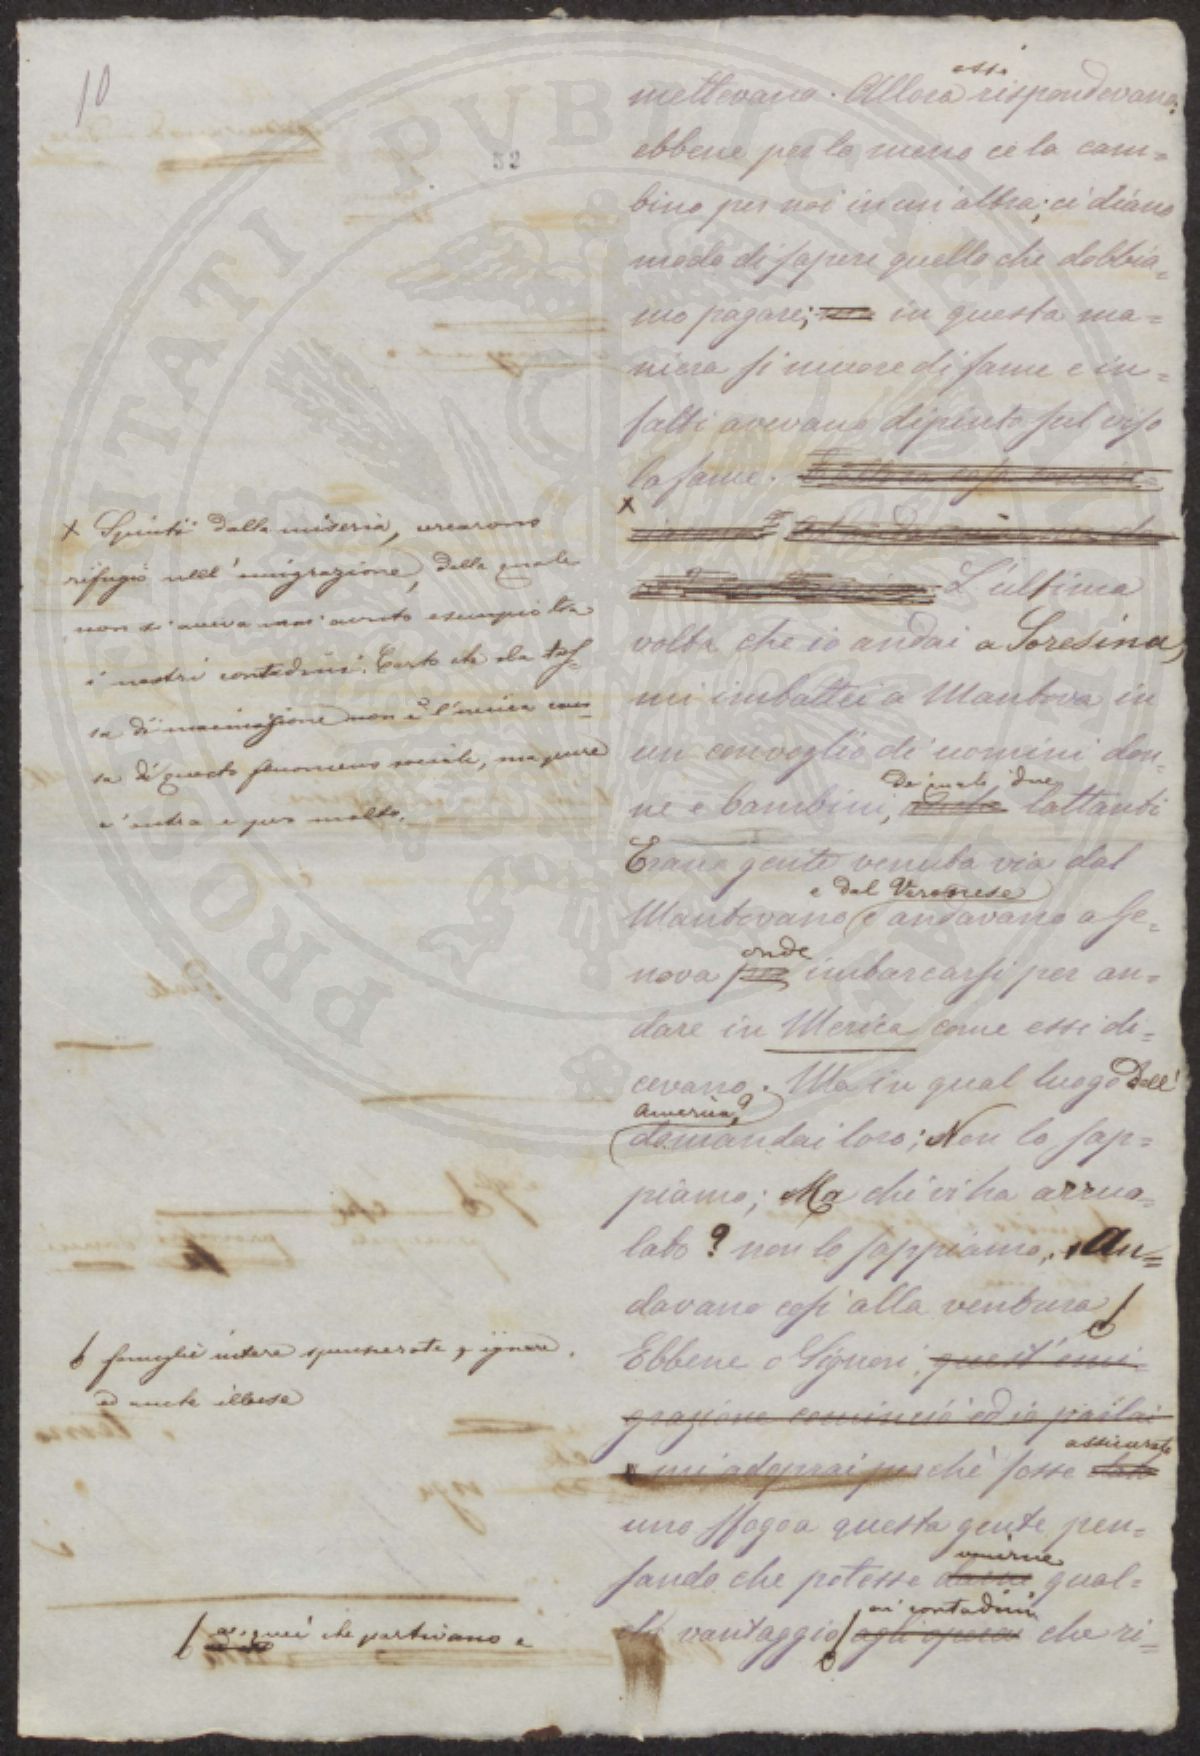 10
52
PROSPERITATI PUBLICAE
mettevano. Allora essi rispondevano:
ebbene per lo meno ce la cam=
bino per noi in un'altra; ci diano
modo di sapere quello che dobbia=
mo pagare; in questa ma=
niera si muore di fame e in=
fatti avevano dipinto sul viso
la fame.
x
L'ultima
volta che io andai a Soresina,
mi imbattei a Mantova in
un convoglio di uomini don=
ne e bambini, de' quali due lattanti
Erano gente venuta via dal
Mantovano e dal Veronese e andavano a Ge=
nova per onde imbarcarsi per an=
dare in Merica come essi di=
cevano. Ma in qual luogo dell'
America? domandai loro; Non lo sap=
piamo; Ma chi vi ha arruo=
lato? non lo sappiamo, An=
davano così alla ventura
Ebbene o Signori, quest'emi=
grazione cominciò ed io parlai
mi adoprai perchè fosse assicurato
uno sfogo a questa gente, pen=
sando che potesse venirne qual=
che vantaggio ai contadini che ri=
x Spinti dalla miseria, cercarono
rifugio nell'emigrazione, della quale
non si aveva mai avuto esempio tra
i nostri contadini. Certo che la tas=
sa di macinazione non è l'unica cau=
sa di questo fenomeno sociale, ma pure
c'entra e per molto.
famiglie intere spensierate, ignare,
ed anche illuse
a quei che partivano e